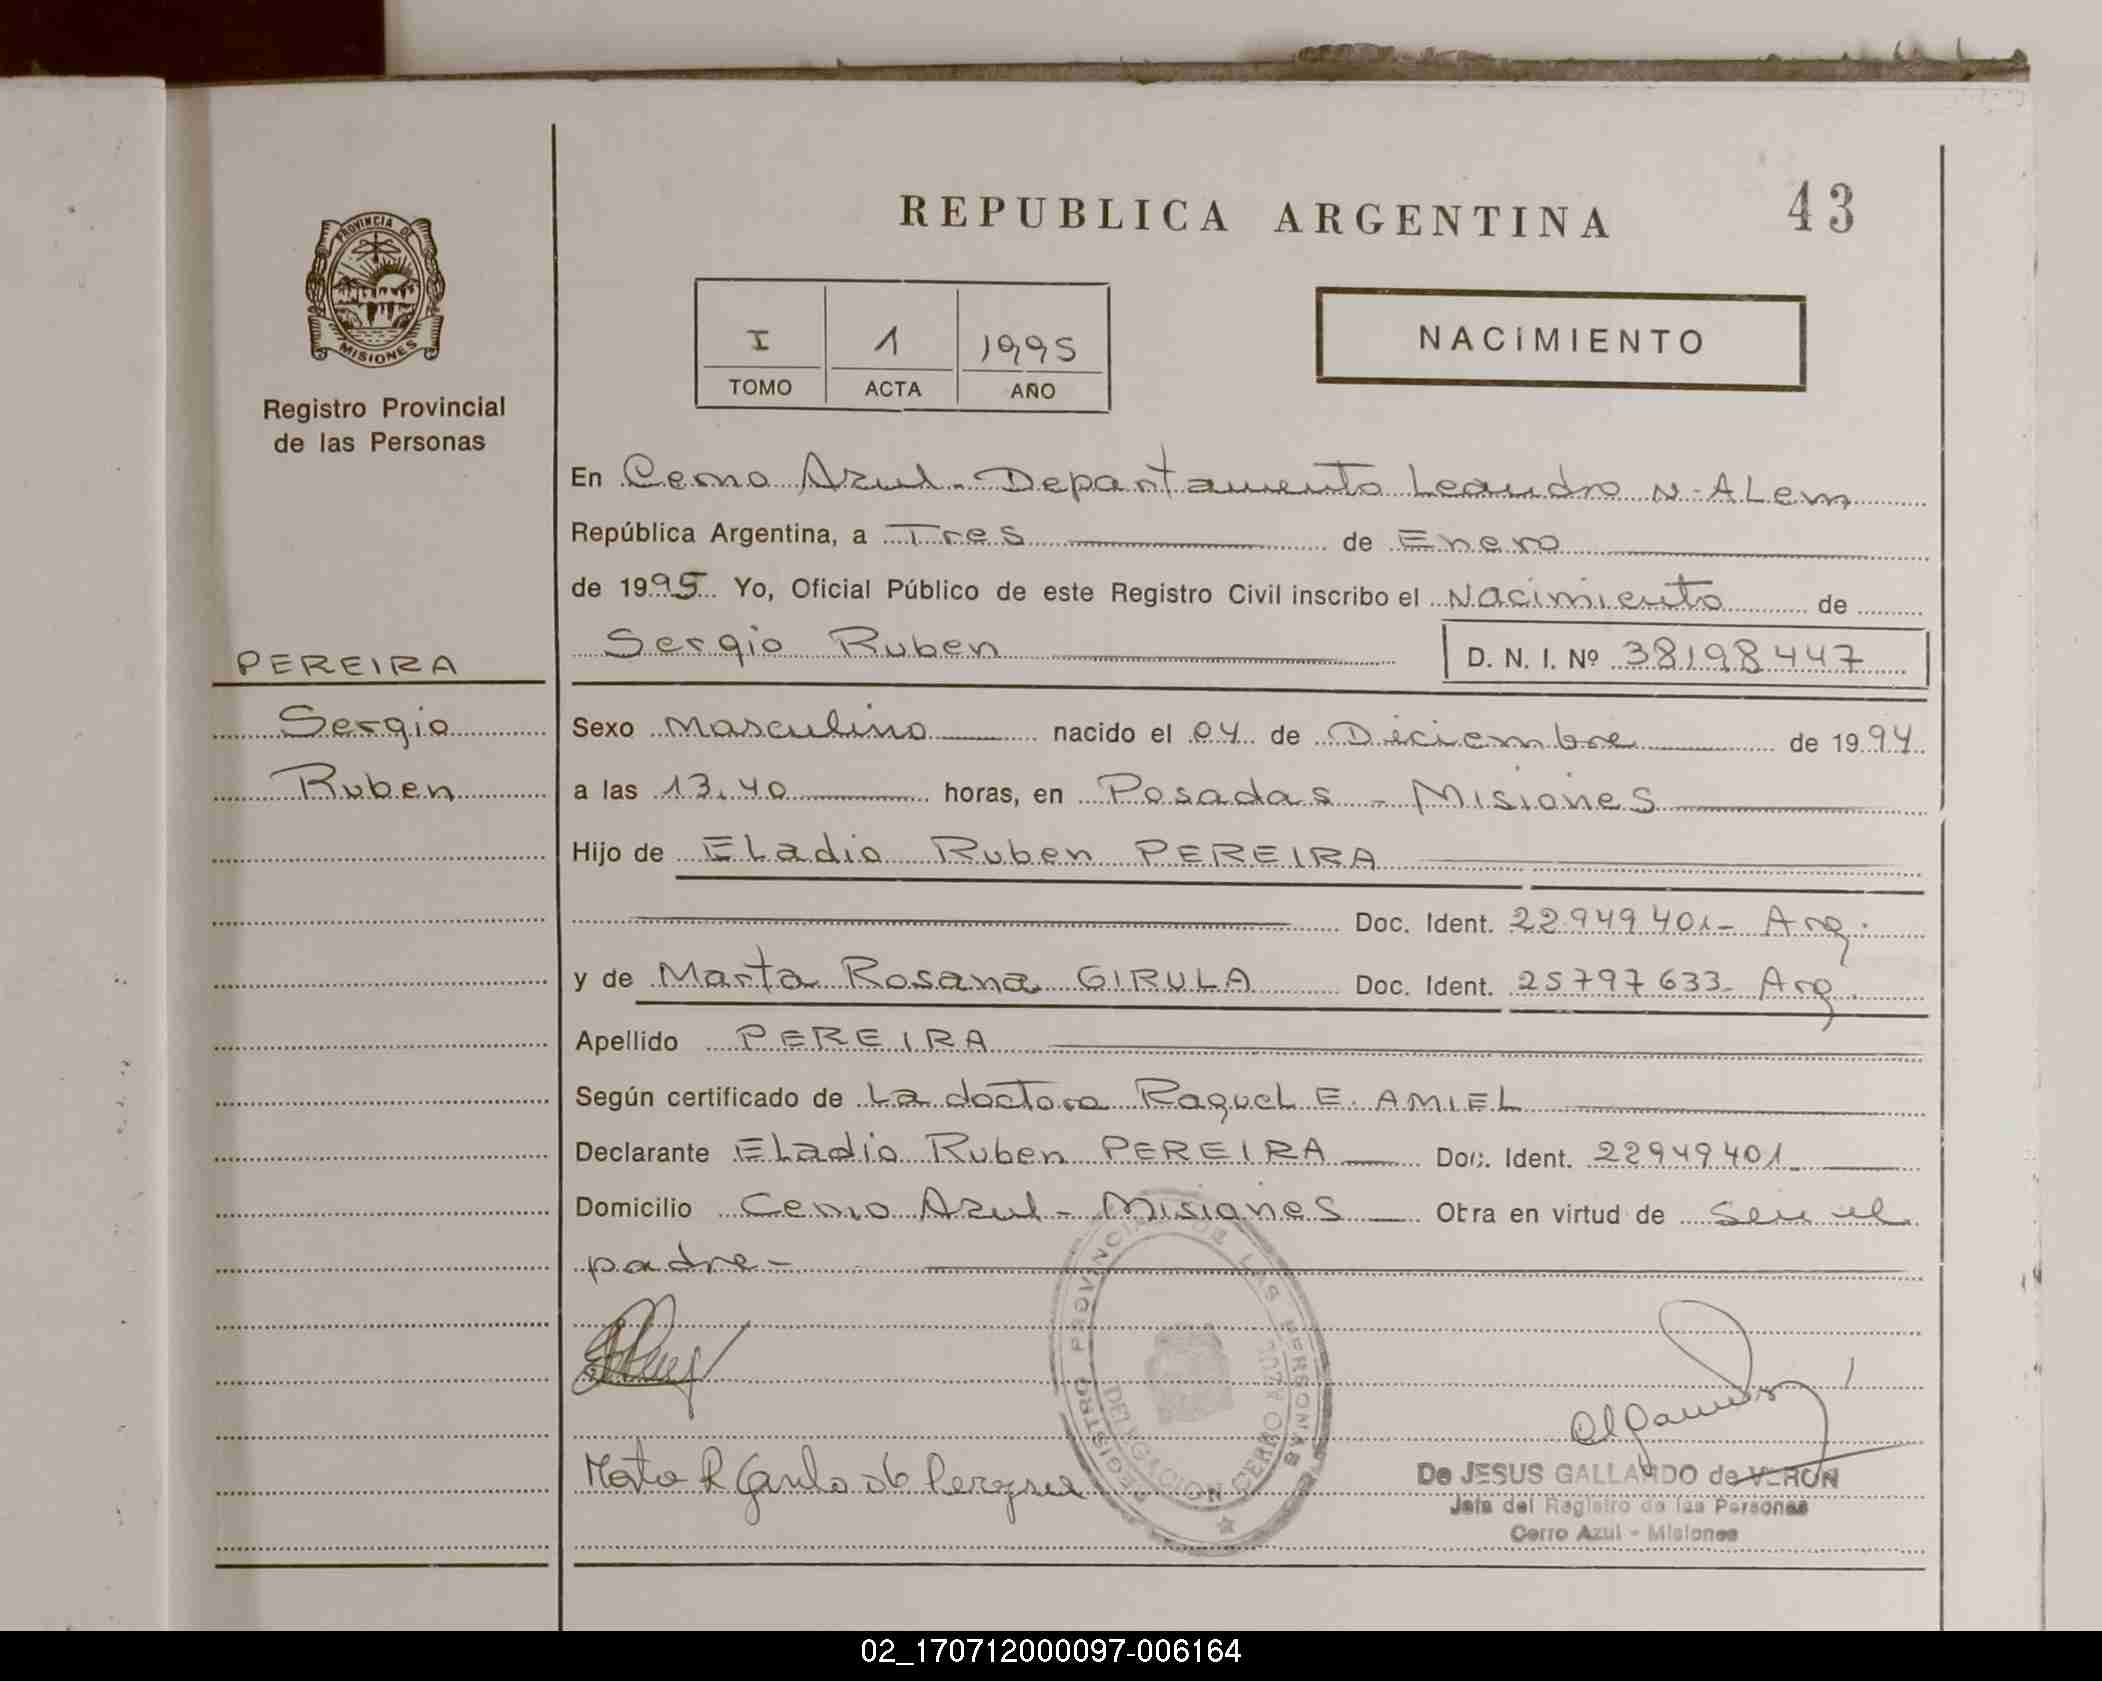 REPUBLICA ARGENTINA
43
PROVINCIA DE
MISIONES
Registro Provincial
de las Personas
I 1 1995
TOMO ACTA AÑO
NACIMIENTO
En Cerro Azul - Departamento Leandro N. ALem
República Argentina, a Tres de Enero
de 1995 Yo, Oficial Público de este Registro Civil inscribo el Nacimiento de
PEREIRA
Sergio Ruben D. N. I. Nº 38198447
Sergio
Sexo Masculino nacido el 04 de Diciembre de 1994
Ruben
a las 13.40 horas, en Posadas - Misiones
Hijo de ELadio Ruben PEREIRA
Doc. Ident. 22.949.401- Arg.
y de Marta Rosana GIRULA Doc. Ident. 25797633- Arg.
Apellido PEREIRA
Según certificado de La doctora Raquel E. AMIEL
Declarante ELadio Ruben PEREIRA Doc. Ident. 22949401
Domicilio Cerro Azul - Misiones Obra en virtud de ser el
padre -
REGISTRO PROVINCIAL DE LAS PERSONAS
DELEGACION CERRO AZUL
De JESUS GALLARDO de VERON
Jefa del Registro de las Personas
Cerro Azul - Misiones
02_170712000097-006164